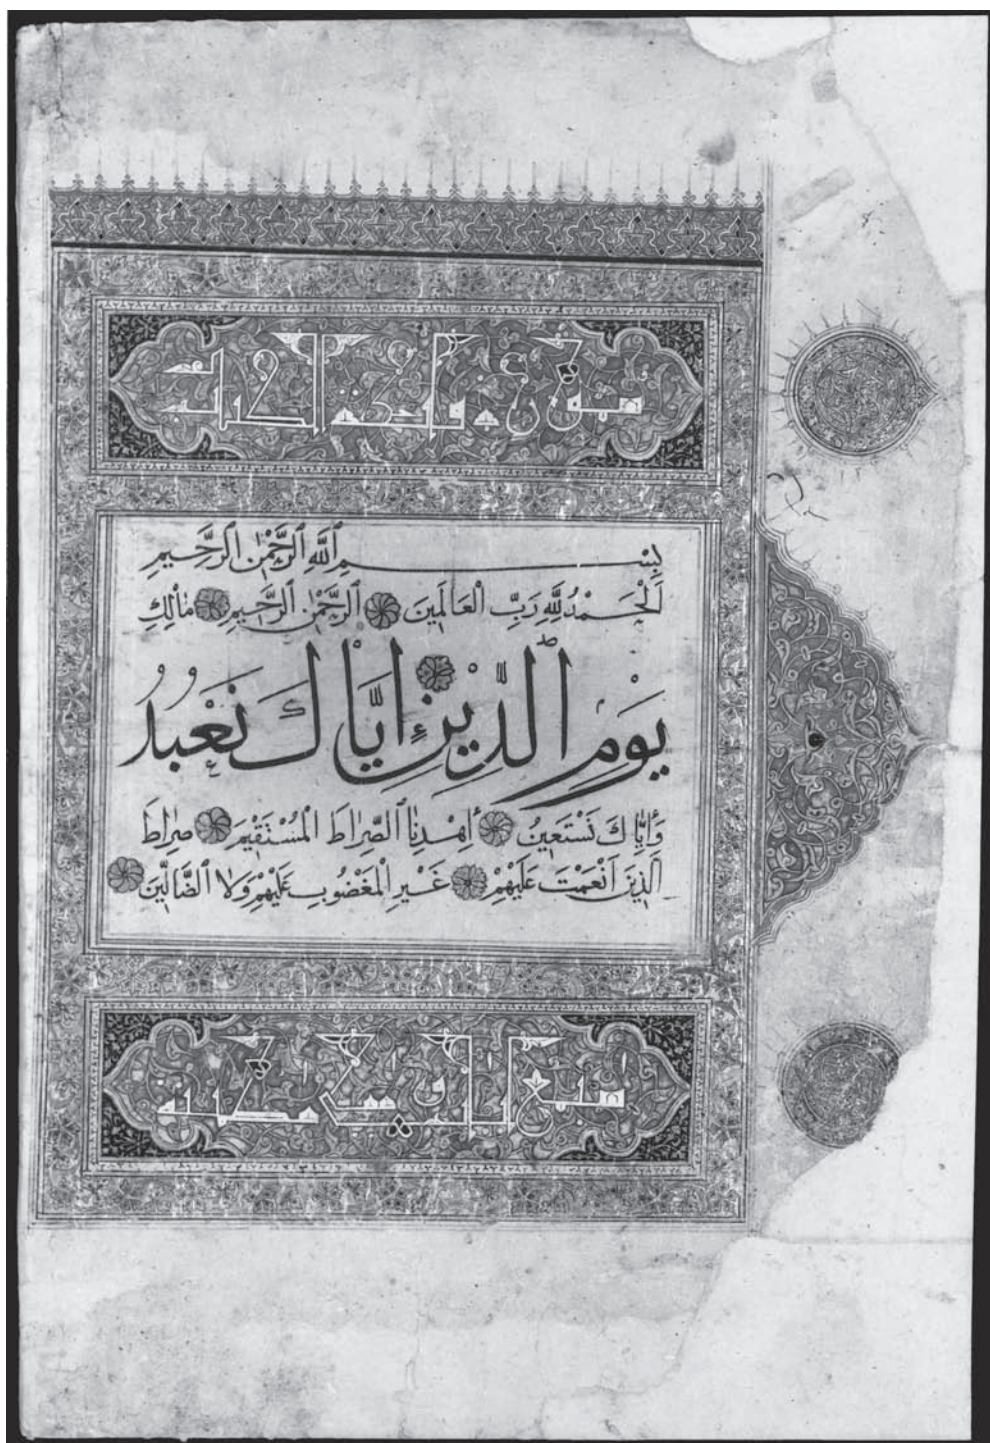 فاتحة الكتاب
بِسْمِ ٱللَّهِ ٱلرَّحْمٰنِ ٱلرَّحِيمِ
اَلْحَمْدُ لِلَّهِ رَبِّ الْعَالَمِينَ ٱلرَّحْمٰنِ ٱلرَّحِيمِ مَالِكِ
يَوْمِ ٱلدِّيْنِ اِيَّاكَ نَعْبُدُ
وَاِيَّاكَ نَسْتَعِينُ اِهْدِنَا ٱلصِّرَاطَ الْمُسْتَقِيْمَ صِرَاطَ
ٱلَّذِينَ اَنْعَمْتَ عَلَيْهِمْ غَيْرِ الْمَغْضُوبِ عَلَيْهِمْ وَلَا ٱلضَّالِّينَ